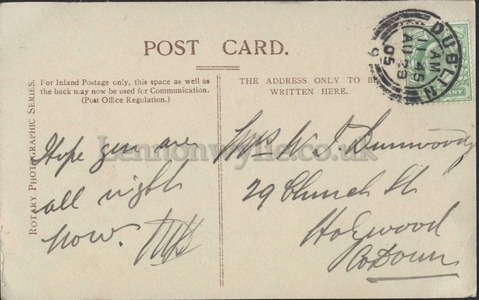 POST CARD.
For Inland Postage only, this space as well as
the back may now be used for Communication.
(Post Office Regulation.)
THE ADDRESS ONLY TO BE
WRITTEN HERE.
ROTARY PHOTOGRAPHIC SERIES.
DUBLIN
1.45 AM
AU 29
05
9
Hope you are
all right
now.
Mrs W J Dunwoody
29 Church St
Holywood
Co Down
Lennonwylie.co.uk